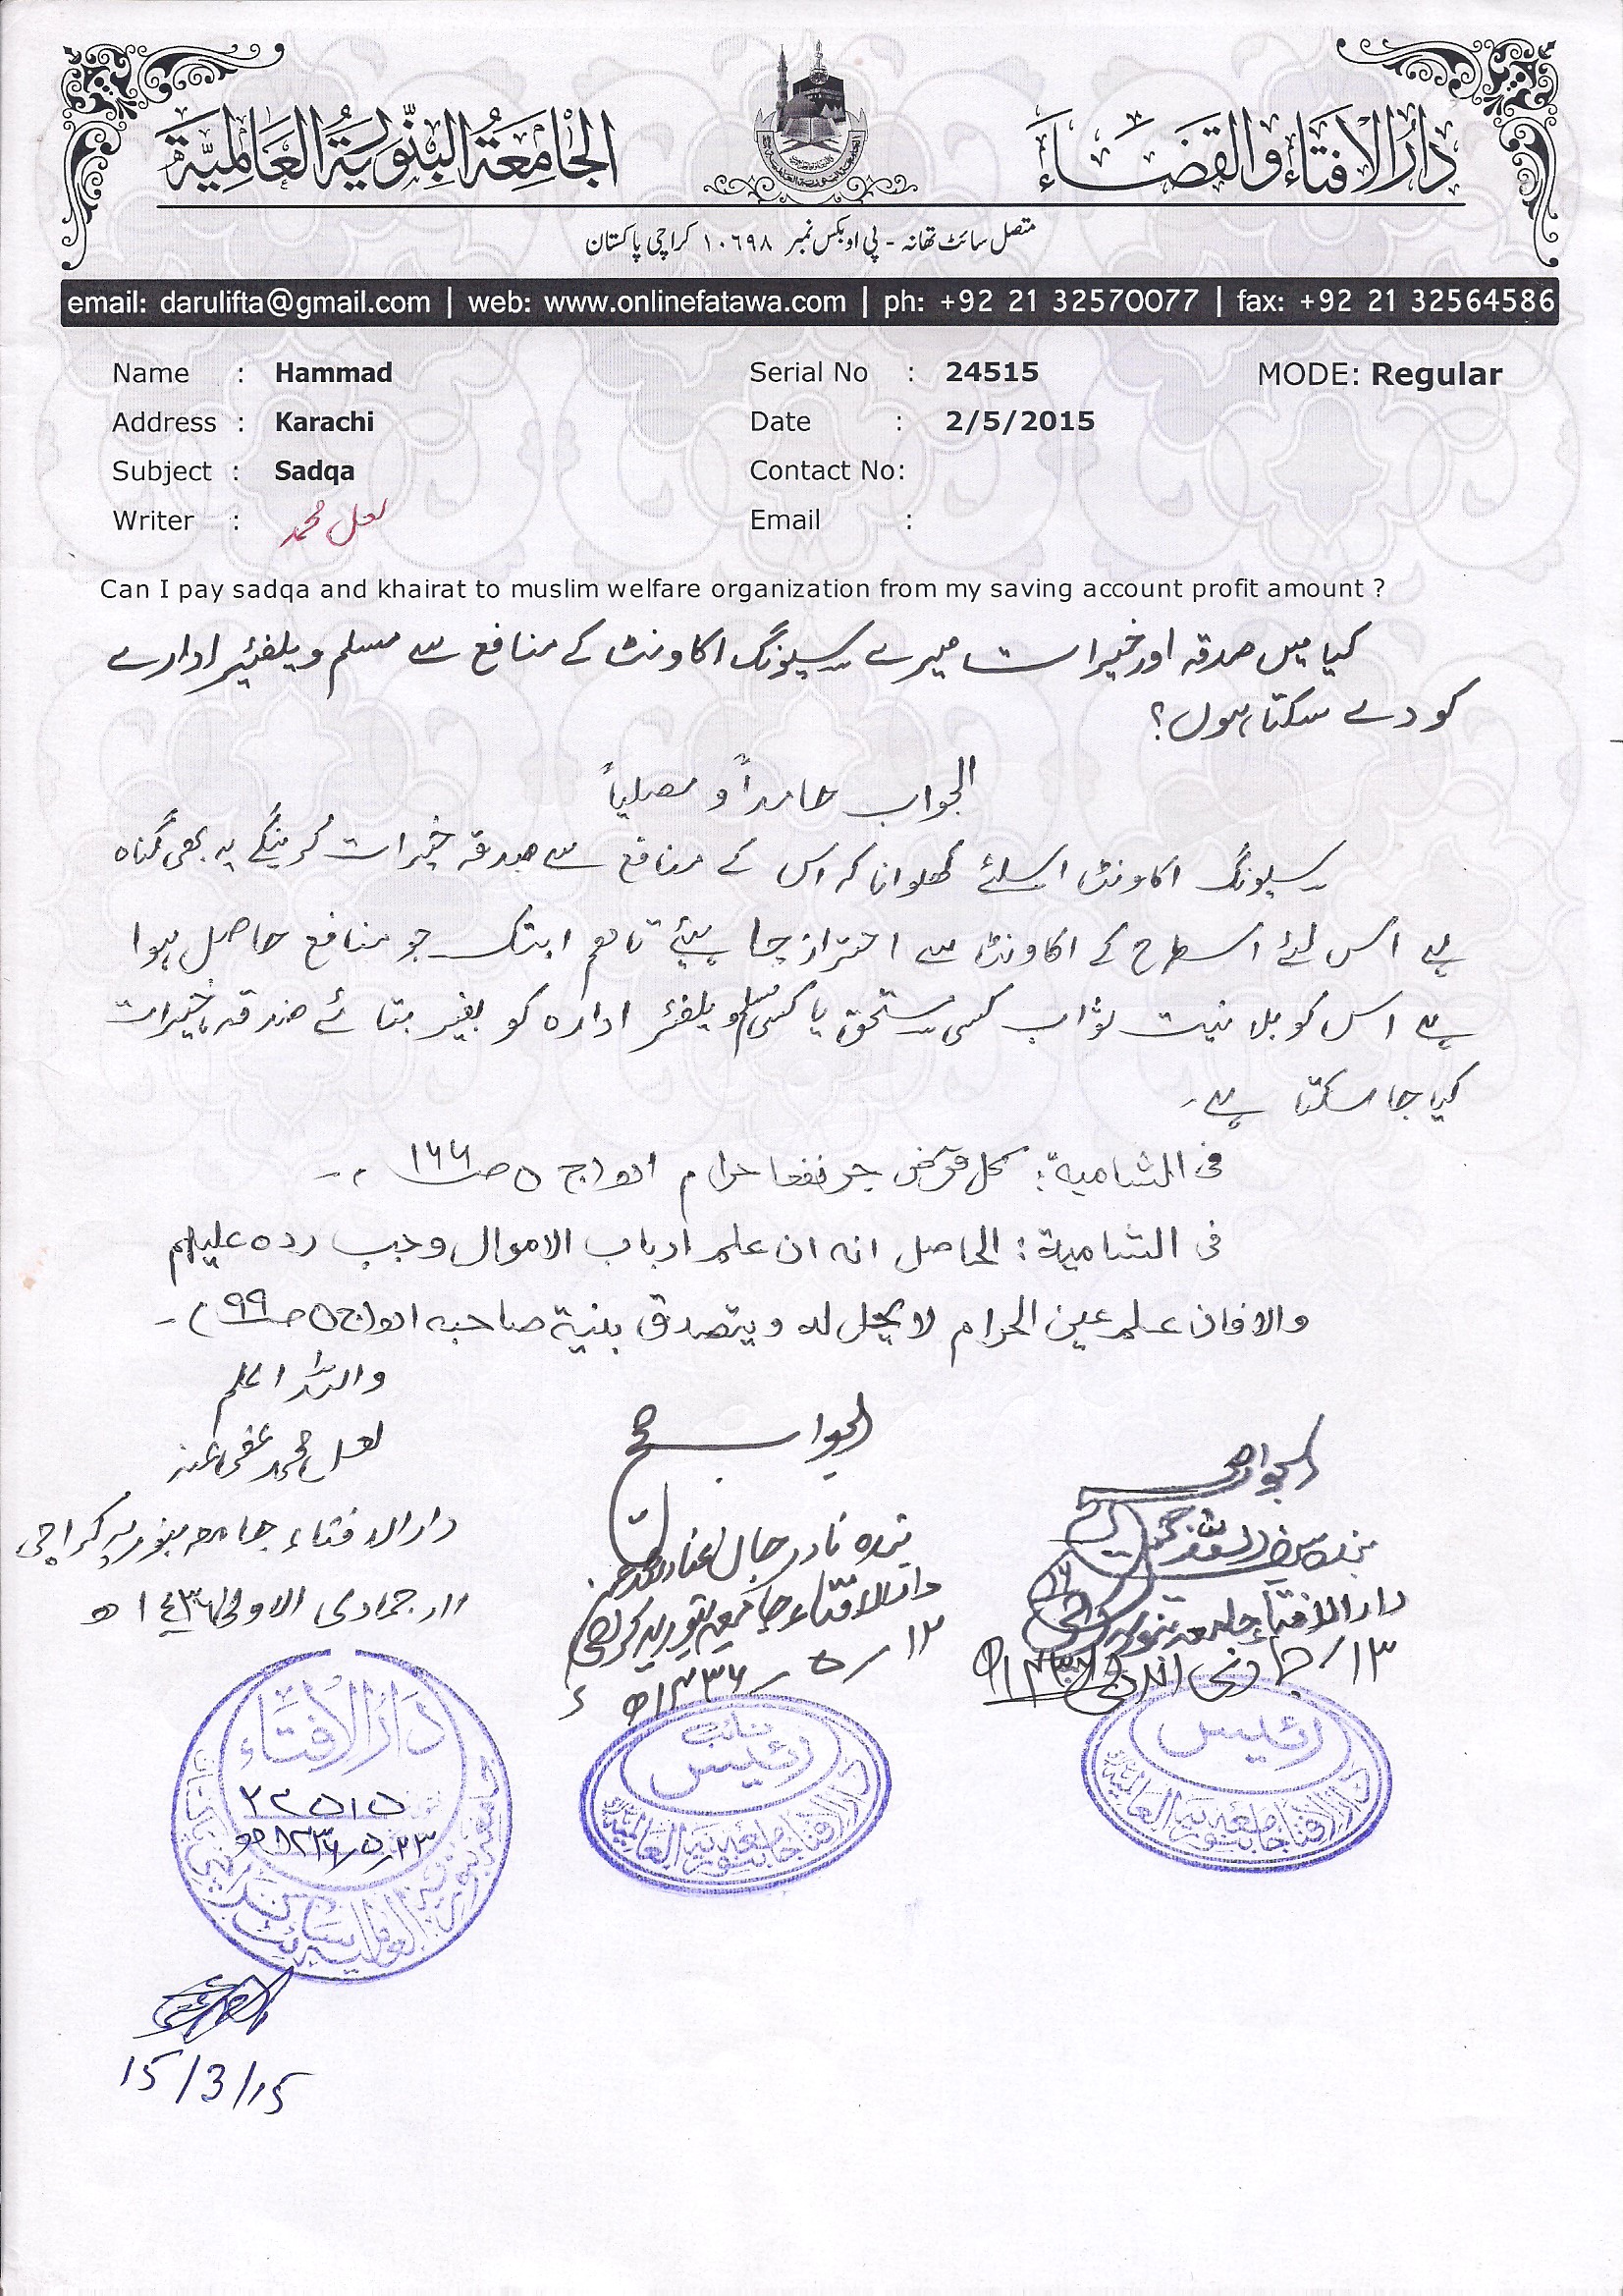 دار الافتاء والقضاء
الجامعة البنورية العالمية
متصل سائٹ تھانہ - پی او بکس نمبر ۱۰۶۹۸ کراچی پاکستان
email: darulifta@gmail.com | web: www.onlinefatawa.com | ph: +92 21 32570077 | fax: +92 21 32564586
Name : Hammad Serial No : 24515 MODE: Regular
Address : Karachi Date : 2/5/2015
Subject : Sadqa Contact No:
Writer : لعل محمد Email :
Can I pay sadqa and khairat to muslim welfare organization from my saving account profit amount ?
کیا میں صدقہ اور خیرات میرے سیونگ اکاونٹ کے منافع سے مسلم ویلفئیر ادارے
کو دے سکتا ہوں؟
الجواب حامداً و مصلیاً
سیونگ اکاونٹ اسلئے کھلوانا کہ اس کے منافع سے صدقہ خیرات کرینگے یہ بھی گناہ
ہے اس لئے اسطرح کے اکاونٹ سے احتراز چاہیئے تاہم ابتک جو منافع حاصل ہوا
ہے اس کو بلا نیت ثواب کسی مستحق یا کسی مسلم ویلفئر ادارہ کو بغیر بتائے صدقہ خیرات
کیا جا سکتا ہے۔
فی الشامیة: کل قرض جر نفعا حرام اھ (ج ۵ ص ۱۶۶)۔
فی الشامیة: الحاصل انه ان علم ارباب الاموال وجب رده علیهم
والا فان علم عین الحرام لا یحل له و یتصدق بنیة صاحبه اھ (ج ۵ ص ۹۹)۔
واللہ اعلم
لعل محمد عفی عنہ
دار الافتاء جامعہ بنوریہ کراچی
۱۱ر جمادی الاولی ۱٤۳٦ھ
الجواب صحیح
بندہ نادر جان
دار الافتاء جامعہ بنوریہ کراچی
۱۲/۵/۱۴۳۶ھ
الجواب صحیح
بندہ سیف اللہ
دار الافتاء جامعہ بنوریہ کراچی
۱۳/جمادی الاولی ۱۴۳۶ھ
دار الافتاء
۲۴۵۱۵
۲۳ر۵ر۱۴۳۶ھ
نائب
رئیس
دار الافتاء جامعہ بنوریہ العالمیہ
رئیس
دار الافتاء جامعہ بنوریہ العالمیہ
15/3/15